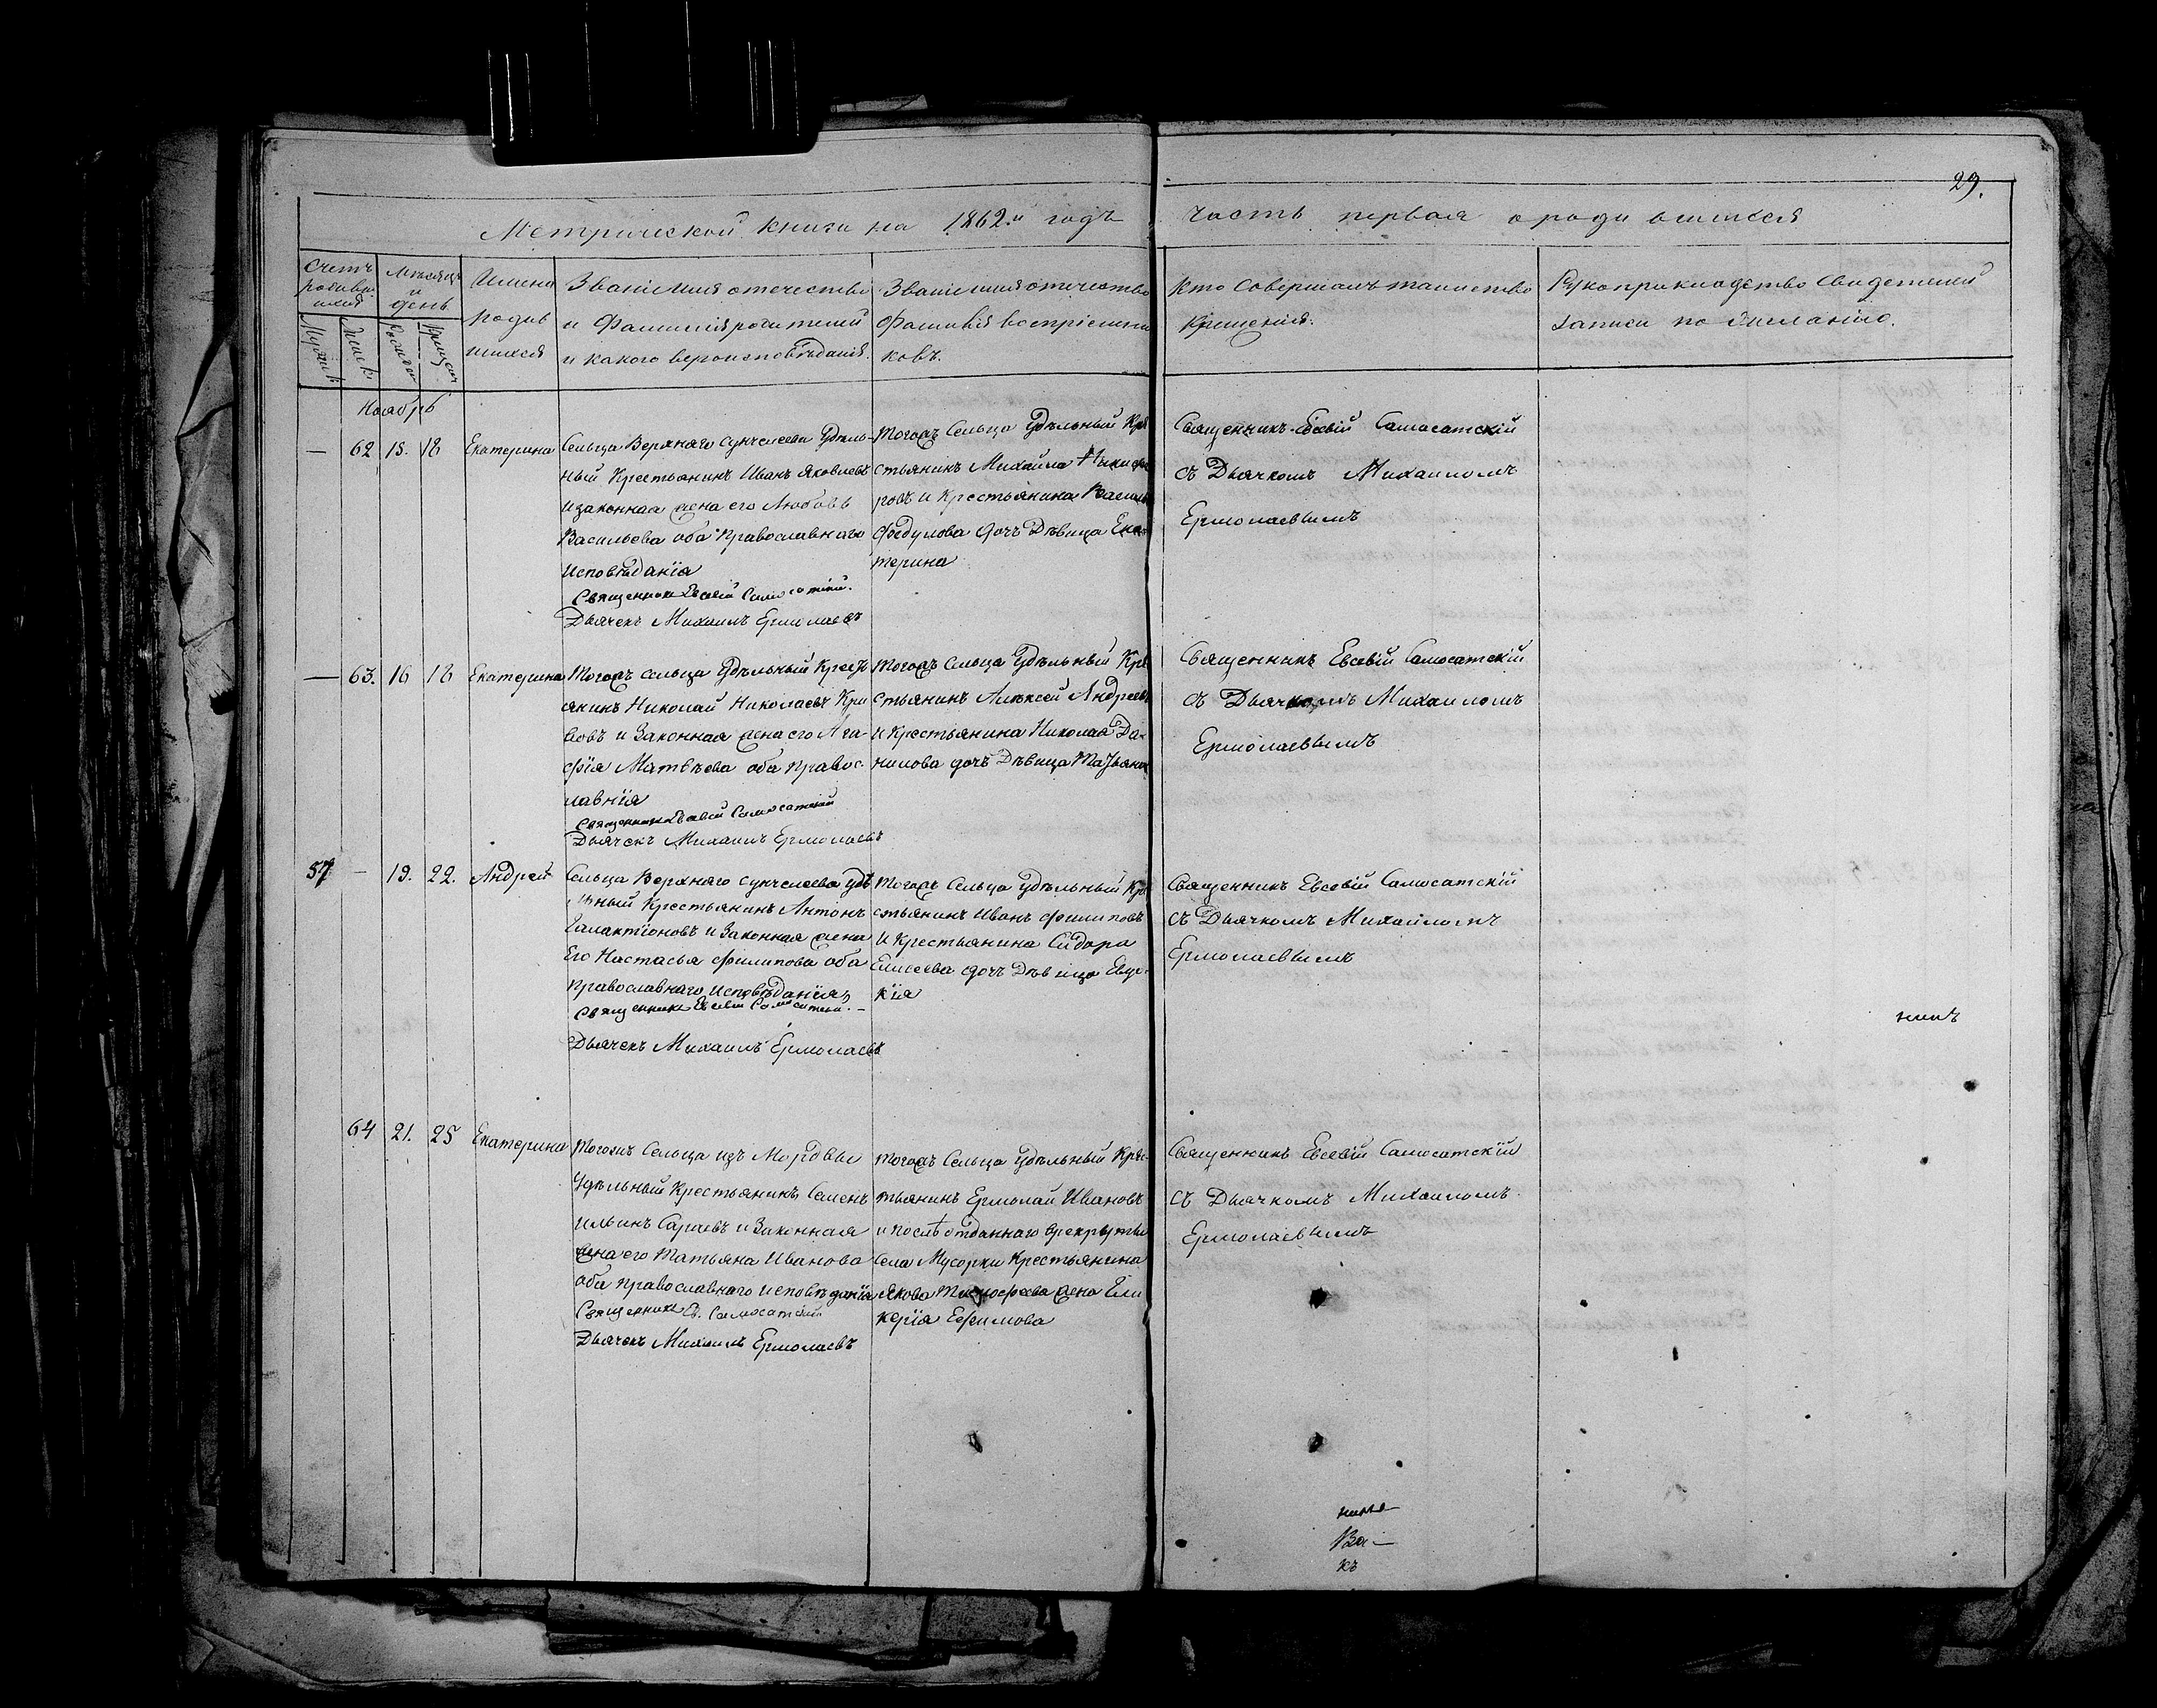 29.
Метрической книги на 1862й годъ часть первая о родившихся
Счетъ родившихся
Мужск.
Женск.
Мѣсяцъ и день
Рожден
Крещен
Имена родившихся
Званіе имя отечество
и фамилія родителей
и какого вероисповѣданія.
Званіе имя отечество
фамилія воспріемниковъ.
Кто совершалъ таинство
крещенія.
Рукоприкладство свидетелей
записи по желанію.
Ноябрь
— 62 15. 18 Екатерина
Сельца Верхняго Сунчелеева Удѣль-
ный Крестьянинъ Иванъ Яковлевъ
и законная жена его Любовь
Васильева оба Православнаго
Исповѣданія
Священникъ Евсевій Самосатскій.
Дьячекъ Михаилъ Ермолаевъ
Тогожъ Сельца Удѣльный Кре
стьянинъ Михайла Никифо
ровъ и Крестьянина Василья
Федулова дочь Дѣвица Ека-
терина
Священникъ Евсевій Самосатскій
съ Дьячкомъ Михаиломъ
Ермолаевымъ
— 63. 16 18 Екатерина
Тогожъ сельца Удѣльный Кресть
янинъ Николай Николаевъ Кри
вовъ и Законная жена его Ага-
фія Матвѣева оба Правос-
лавнія
Священникъ Евсевій Самосатскій
Дьячекъ Михаилъ Ермолаевъ
Тогожъ Сельца Удѣльный Кре
стьянинъ Алѣксей Андреевъ
и Крестьянина Николая Да-
нилова дочь Дѣвица Татьяна
Священникъ Евсевій Самосатскій
съ Дьячкомъ Михаиломъ
Ермолаевымъ
57 — 19. 22. Андрей
Сельца Верхняго Сунчелеева Удѣ
льный Крестьянинъ Антонъ
Галактіоновъ и Законная жена
Его Настасья Филипова оба
Православнаго исповѣданія,
Священникъ Евсевій Самосатскій.
Дьячекъ Михаилъ Ермолаевъ
Тогожъ Сельца Удѣльный Кре
стьянинъ Иванъ Филиповъ
и Крестьянина Сидора
Елисеева дочь Дѣвица Евдо-
кія
Священникъ Евсевій Самосатскій
съ Дьячкомъ Михаиломъ
Ермолаевымъ
64 21. 25 Екатерина
Тогожъ Сельца изъ Мордвы
Удѣльный Крестьянинъ Семенъ
Ильинъ Сараевъ и Законная
жена его Татьяна Иванова
оба Православнаго исповѣданія
Священникъ Ев. Самосатскій
Дьячекъ Михаилъ Ермолаевъ
Тогожъ Сельца Удѣльный Крес-
тьянинъ Ермолай Ивановъ
и послѣ отданнаго в рекруты
села Мусорки Крестьянина
Якова жена Гли
керія Ефимова
Священникъ Евсевій Самосатскій
съ Дьячкомъ Михаиломъ
Ермолаевымъ